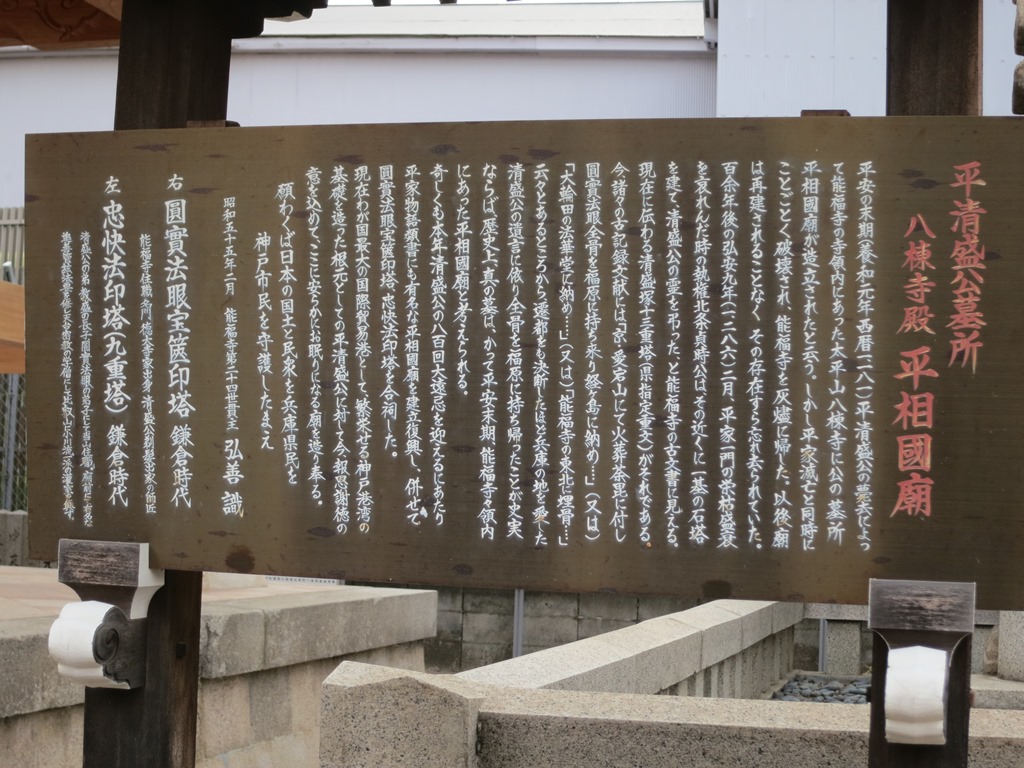 平清盛公墓所
八棟寺殿 平相國廟
平安の末期(養和元年西暦一一八一)平清盛公の薨去によっ
て能福寺の寺領内にあった太平山八棟寺に公の墓所
平相國廟が造立されたと云う。しかし平家滅亡と同時に
ことごとく破壊され、能福寺を灰燼に帰した。以後廟
は再建されることなく、その存在すら忘れ去られていた。
百余年後の弘安九年(一二八六)二月、平家一門の栄枯盛衰
を哀れんだ時の執権北条貞時公は、その近くに一基の石塔
を建て、清盛公の霊を弔った、と能福寺の古文書に見える。
現在に伝わる清盛塚十三重塔(県指定重文)がそれである。
今、諸々の古記録文献には「京、愛宕山にて火葬荼毘に付し
圓實法眼全骨を福原に持ち来り経ヶ島に納め…」(又は)
「大輪田の法華堂に納め…」(又は)「能福寺の東北に埋骨…」
云々とあるところから遷都をも決断したほど兵庫の地を愛した
清盛公の遺言に依り全骨を福原に持ち帰ったことが史実
ならば歴史上真の墓は、かつて平安末期、能福寺の領内
にあった平相國廟と考えられる。
奇しくも本年清盛公の八百回大遠忌を迎えるにあたり
平家物語類書にも有名な平相國廟を建立復興し、併せて
圓實法眼宝篋印塔、忠快法印塔を合祠した。
現在わが国最大の国際貿易港として繁栄せる神戸港湾の
基礎を造った根元としての平清盛公に対して今、報恩謝徳の
意を込めてここに安らかにお眠りになる廟を造り奉る。
願わくば日本の国土と民衆と兵庫県民と
神戸市民を守護したまえ
昭和五十五年二月 能福寺第二十四世貫主 弘善 識
右 圓實法眼宝篋印塔 鎌倉時代
左 忠快法印塔(九重塔) 鎌倉時代